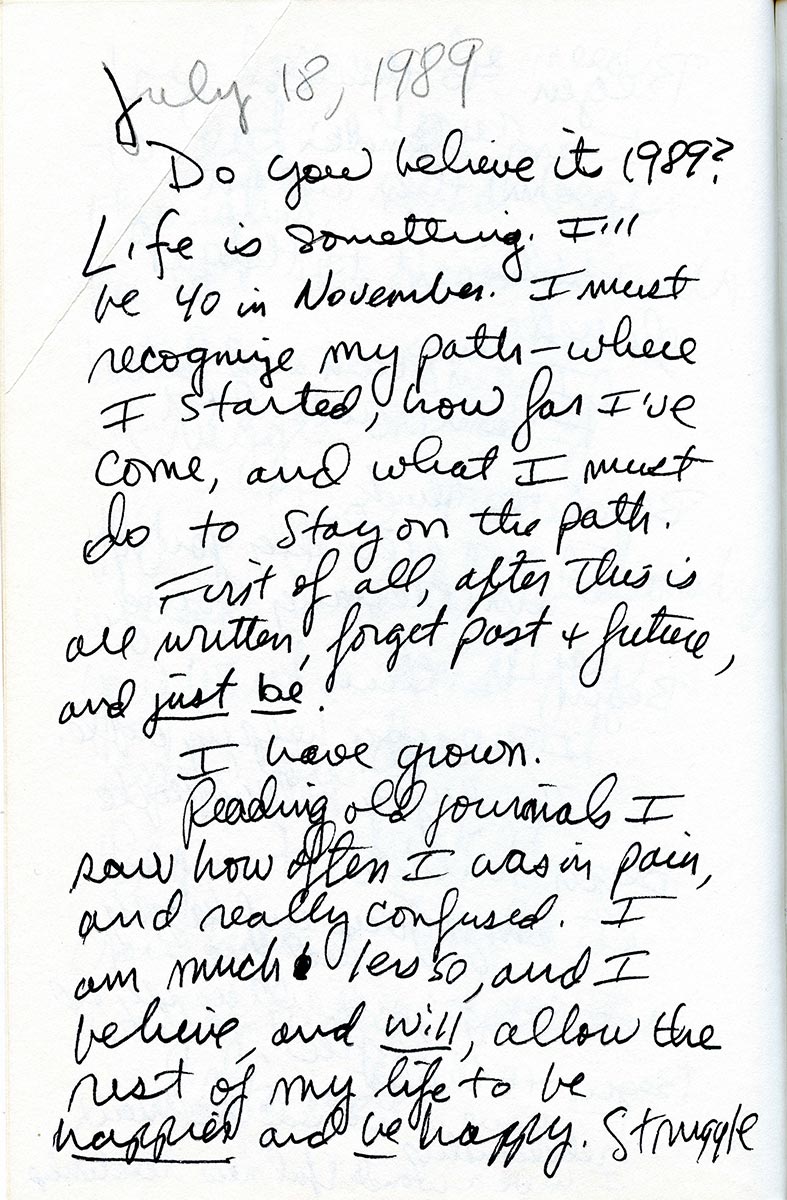 July 18, 1989
Do you believe it 1989?
Life is something. I'll
be 40 in November. I must
recognize my path – where
I started, how far I've
come, and what I must
do to stay on the path.
First of all, after this is
all written, forget past + future,
and just be.
I have grown.
Reading old journals I
saw how often I was in pain,
and really confused. I
am much less so, and I
believe, and will, allow the
rest of my life to be
happier and be happy. Struggle